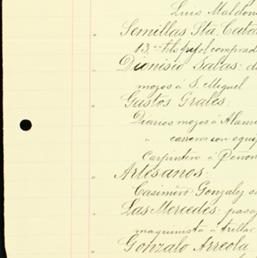 Luis Maldon
Semillas Sta. Cata
13.- frijol comprad
Dionisio Salas: d
mozos á S. Miguel
Gastos Grales:
Diarios mozos á Alam
" carrero con equi
Carpintero á Peno
Artesanos:
Casimiro Gonzalez
Las Mercedes: pasa
maquinista á trillar
Gonzalo Arreola